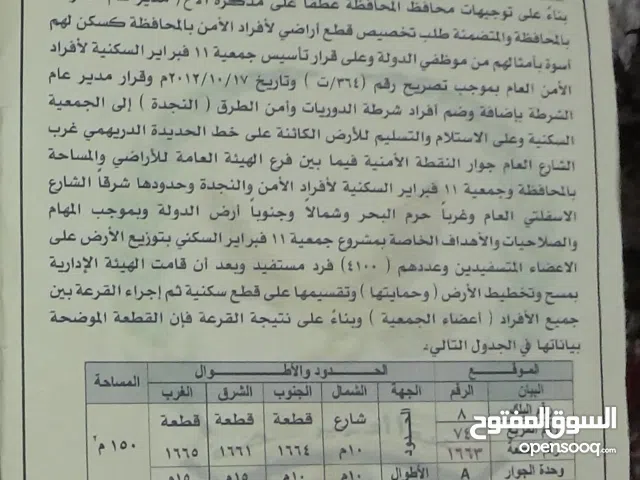 بناءً على توجيهات محافظ المحافظة عطفاً على مذكرة الأخ/ مدير عام
بالمحافظة والمتضمنة طلب تخصيص قطع أراضي لأفراد الأمن بالمحافظة كسكن لهم
أسوة بأمثالهم من موظفي الدولة وعلى قرار تأسيس جمعية ١١ فبراير السكنية لأفراد
الأمن العام بموجب تصريح رقم (٣٦٤/ت ) وتاريخ ٢٠١٢/١٠/١٧م وقرار مدير عام
الشرطة بإضافة وضم أفراد شرطة الدوريات وأمن الطرق ( النجدة ) إلى الجمعية
السكنية وعلى الاستلام والتسليم للأرض الكائنة على خط الحديدة الدريهمي غرب
الشارع العام جوار النقطة الأمنية فيما بين فرع الهيئة العامة للأراضي والمساحة
بالمحافظة وجمعية ١١ فبراير السكنية لأفراد الأمن والنجدة وحدودها شرقاً الشارع
الاسفلتي العام وغرباً حرم البحر وشمالاً وجنوباً أرض الدولة وبموجب المهام
والصلاحيات والأهداف الخاصة بمشروع جمعية ١١ فبراير السكني بتوزيع الأرض على
الاعضاء المتسفيدين وعددهم ( ٤١٠٠) فرد مستفيد وبعد أن قامت الهيئة الإدارية
بمسح وتخطيط الأرض ( وحمايتها ) وتقسيمها على قطع سكنية ثم إجراء القرعة بين
جميع الأفراد ( أعضاء الجمعية ) وبناءً على نتيجة القرعة فإن القطعة الموضحة
بياناتها في الجدول التالي:
الموقع الحدود والأطوال المساحة
البيان الرقم الجهة الشمال الجنوب الشرق الغرب
٨ شارع قطعة قطعة قطعة
٧٤
١٦٦٣ ١٠م ١٦٦٤ ١٦٦١ ١٦٦٥ ١٥٠ م٢
وحدة الجوار A الأطوال ١٠م ١٠م ١٥م ١٥م
السوق المفتوح
opensooq.com